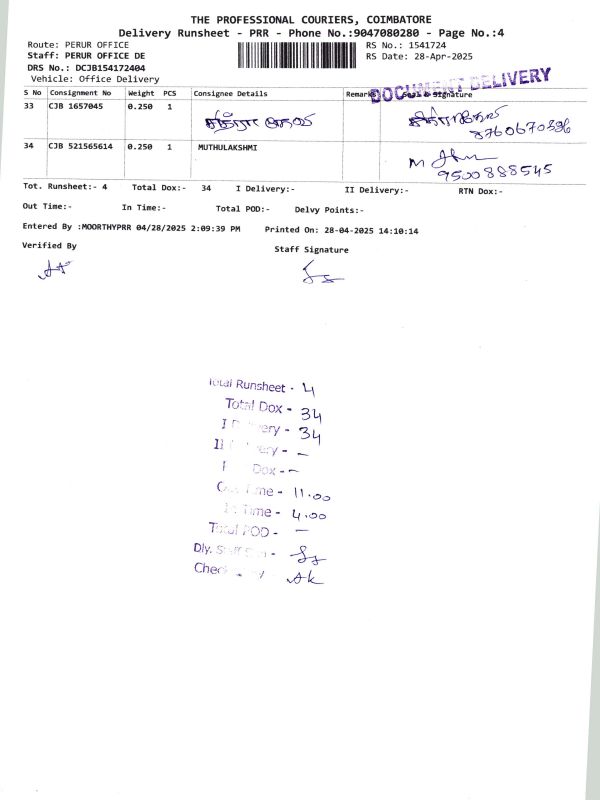 THE PROFESSIONAL COURIERS, COIMBATORE
Delivery Runsheet - PRR - Phone No.:9047080280 - Page No.:4
Route: PERUR OFFICE
RS No.: 1541724
Staff: PERUR OFFICE DE
RS Date: 28-Apr-2025
DRS No.: DCJB154172404
Vehicle: Office Delivery
DOCUMENT DELIVERY
S No Consignment No Weight PCS Consignee Details Remarks Seal & Signature
33 CJB 1657045 0.250 1 சித்ரா தேவி
8760670336
34 CJB 521565614 0.250 1 MUTHULAKSHMI
9500888545
Tot. Runsheet:- 4 Total Dox:- 34 I Delivery:- II Delivery:- RTN Dox:-
Out Time:- In Time:- Total POD:- Delvy Points:-
Entered By :MOORTHYPRR 04/28/2025 2:09:39 PM Printed On: 28-04-2025 14:10:14
Verified By Staff Signature
Total Runsheet - 4
Total Dox - 34
I Delivery - 34
II Delivery - –
Dox - –
Out Time - 11.00
In Time - 4.00
Total POD - –
Dly. Staff Sign -
Check